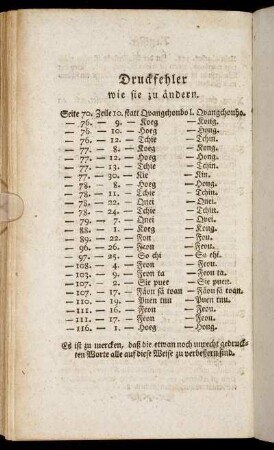 Druckfehler
wie sie zu ändern.
Seite 70. Zeile 10. statt Qvangchonbo l. Qvangchouho.
— 76. — 9. — Koeg — Kong.
— 76. — 10. — Hoeg — Hong.
— 76. — 12. — Tchie — Tchin.
— 77. — 8. — Koeg — Kong.
— 77. — 12. — Hoeg — Hong.
— 77. — 13. — Tchie — Tchin.
— 77. — 30. — Kie — Kin.
— 78. — 8. — Hoeg — Hong.
— 78. — 11. — Tchie — Tchin.
— 78. — 22. — Onei — Ouei.
— 78. — 24. — Tchie — Tchin.
— 79. — 7. — Onei — Ovei.
— 88. — 1. — Koeg — Kong.
— 89. — 22. — Fon — Fou.
— 96. — 26. — Feon — Feou.
— 97. — 25. — So chi — So chi.
— 108. — 4. — Feon — Feou.
— 103. — 9. — Feon ta — Feou ta.
— 107. — 2. — Sie puer — Sie puen.
— 107. — 17. — Nâon sâ toan — Nâou sâ toan.
— 110. — 19. — Puen tun — Puen tuu.
— 111. — 16. — Feon — Feou.
— 211. — 17. — Feon — Feou.
— 116. — 1. — Hoeg — Hong.
Es ist zu mercken, daß die etwan noch unrecht gedruck-
ten Worte alle auf diese Weise zu verbessern sind.